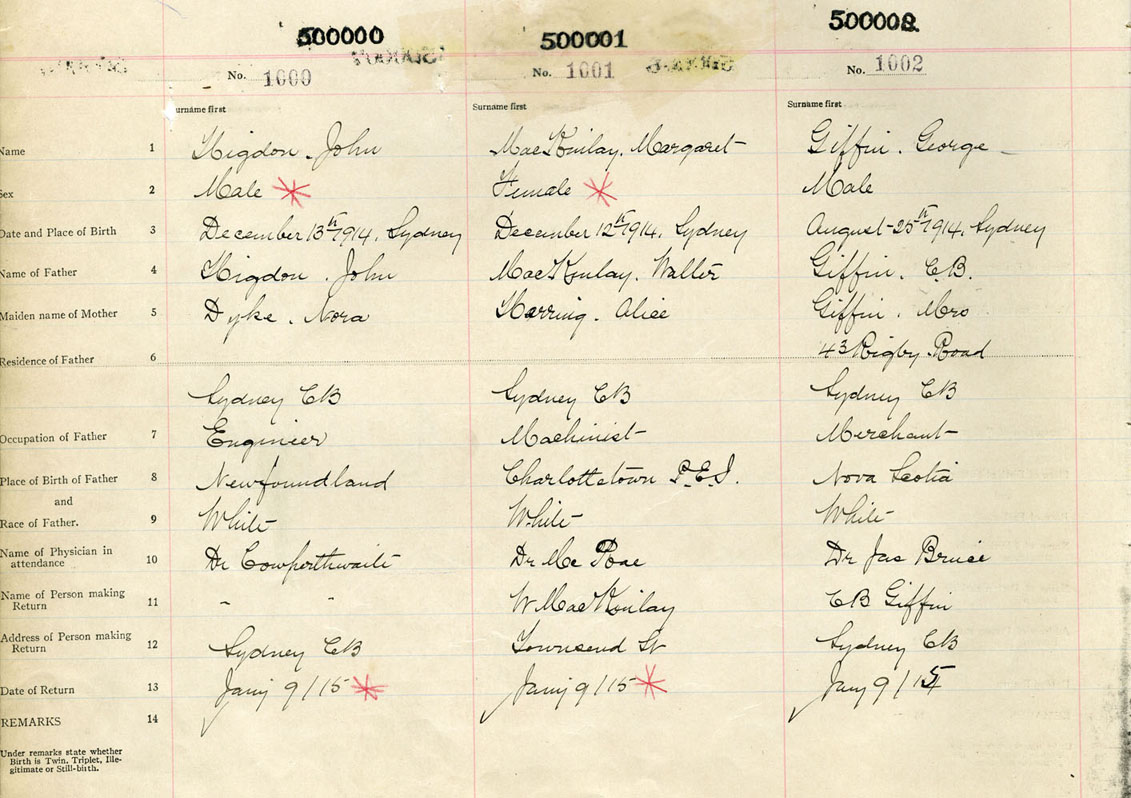 500000 500001 500002
No. 1000 No. 1001 No. 1002
Surname first Surname first Surname first
Name 1 Higdon, John MacKinlay, Margaret Giffin, George
Sex 2 Male Female Male
Date and Place of Birth 3 December 13th 1914, Sydney December 12th 1914, Sydney August 25th 1914, Sydney
Name of Father 4 Higdon, John MacKinlay, Walter Giffin, C.B.
Maiden name of Mother 5 Dyke, Nora Herring, Alice Giffin, Mrs
Residence of Father 6 43 Rigby Road
Sydney CB Sydney CB Sydney CB
Occupation of Father 7 Engineer Machinist Merchant
Place of Birth of Father 8 Newfoundland Charlottetown P.E.I. Nova Scotia
and
Race of Father. 9 White White White
Name of Physician in
attendance 10 Dr Cowperthwaite Dr Mc Rae Dr Jas Bruce
Name of Person making
Return 11 " " W MacKinlay CB Giffin
Address of Person making
Return 12 Sydney CB Townsend St Sydney CB
Date of Return 13 Jany 9/15 Jany 9/15 Jany 9/15
REMARKS 14
Under remarks state whether
Birth is Twin, Triplet, Ille-
gitimate or Still-birth.